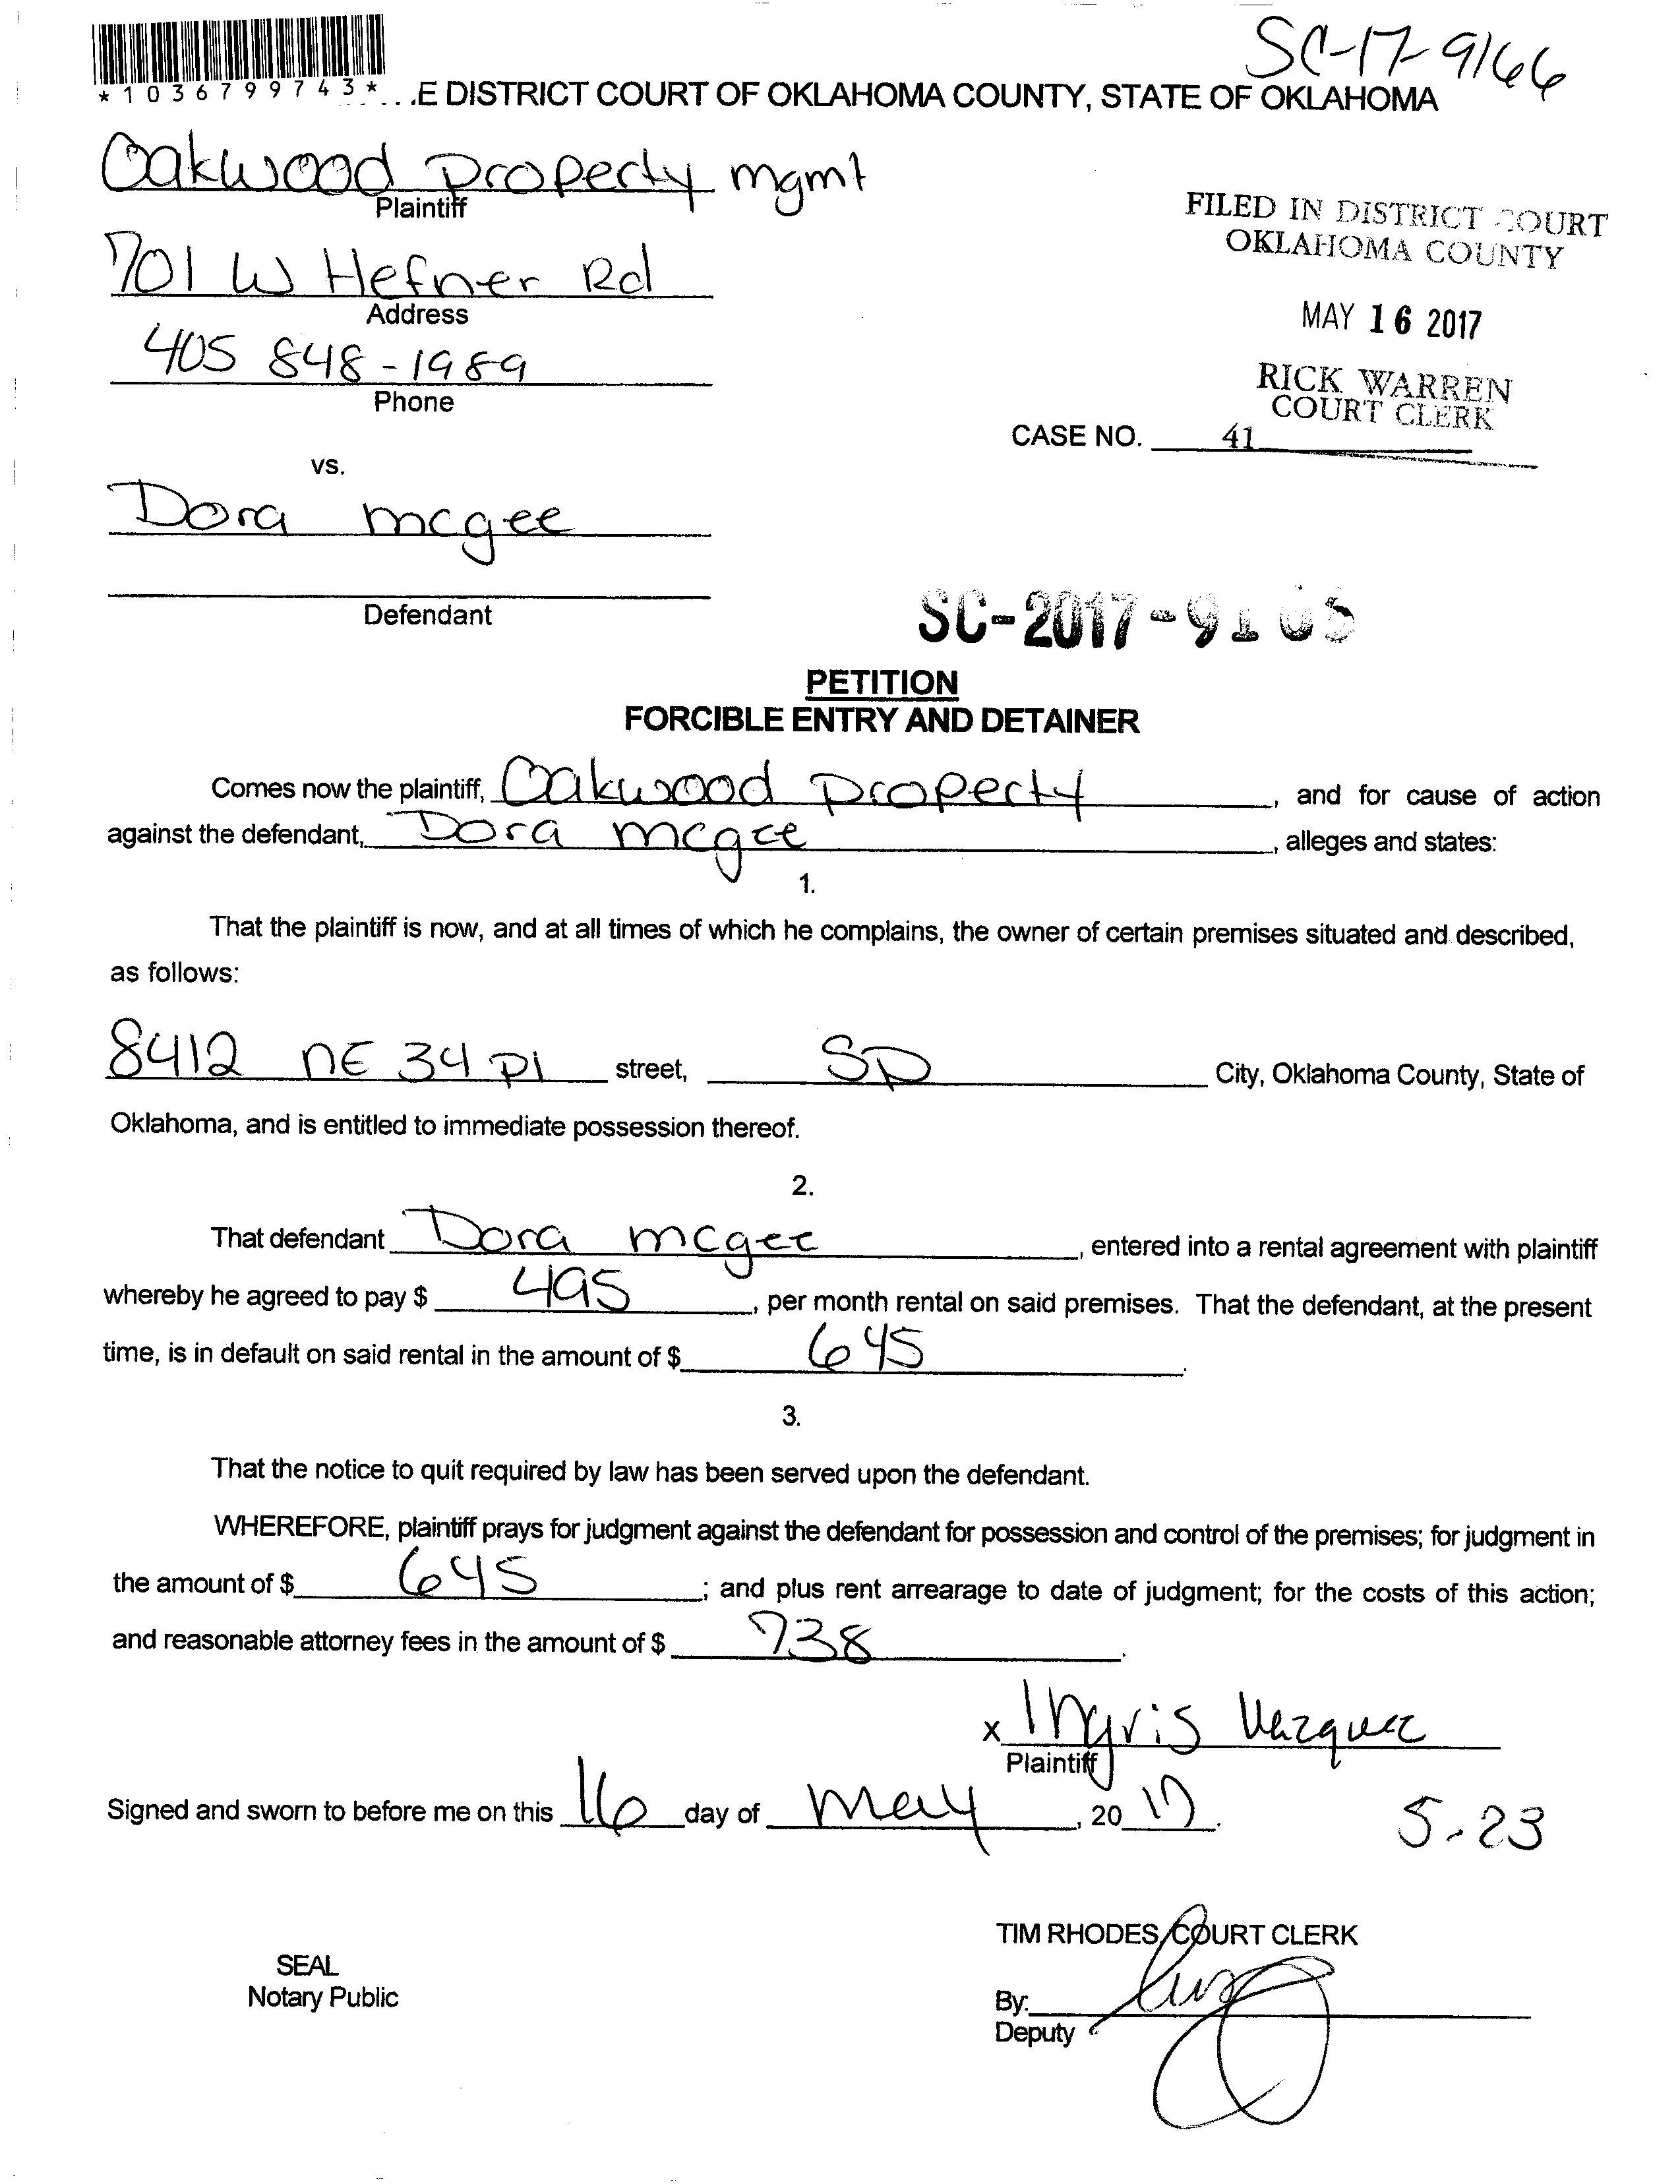 SC-17-9166
*1036799743*
E DISTRICT COURT OF OKLAHOMA COUNTY, STATE OF OKLAHOMA
Oakwood Property mgmt
Plaintiff
701 W Hefner Rd
Address
405 848-1989
Phone
FILED IN DISTRICT COURT
OKLAHOMA COUNTY
MAY 16 2017
RICK WARREN
COURT CLERK
CASE NO. 41
vs.
Dora mcgee
Defendant
SC-2017-91
PETITION
FORCIBLE ENTRY AND DETAINER
Comes now the plaintiff, Oakwood Property, and for cause of action
against the defendant, Dora mcgee, alleges and states:
1.
That the plaintiff is now, and at all times of which he complains, the owner of certain premises situated and described,
as follows:
8412 NE 34 Pl street, SP City, Oklahoma County, State of
Oklahoma, and is entitled to immediate possession thereof.
2.
That defendant Dora mcgee, entered into a rental agreement with plaintiff
whereby he agreed to pay $ 495, per month rental on said premises. That the defendant, at the present
time, is in default on said rental in the amount of $ 645.
3.
That the notice to quit required by law has been served upon the defendant.
WHEREFORE, plaintiff prays for judgment against the defendant for possession and control of the premises; for judgment in
the amount of $ 645; and plus rent arrearage to date of judgment; for the costs of this action;
and reasonable attorney fees in the amount of $ 738.
x Ingris Vazquez
Plaintiff
Signed and sworn to before me on this 16 day of May, 20 17.
5-23
TIM RHODES, COURT CLERK
SEAL
Notary Public
By:
Deputy